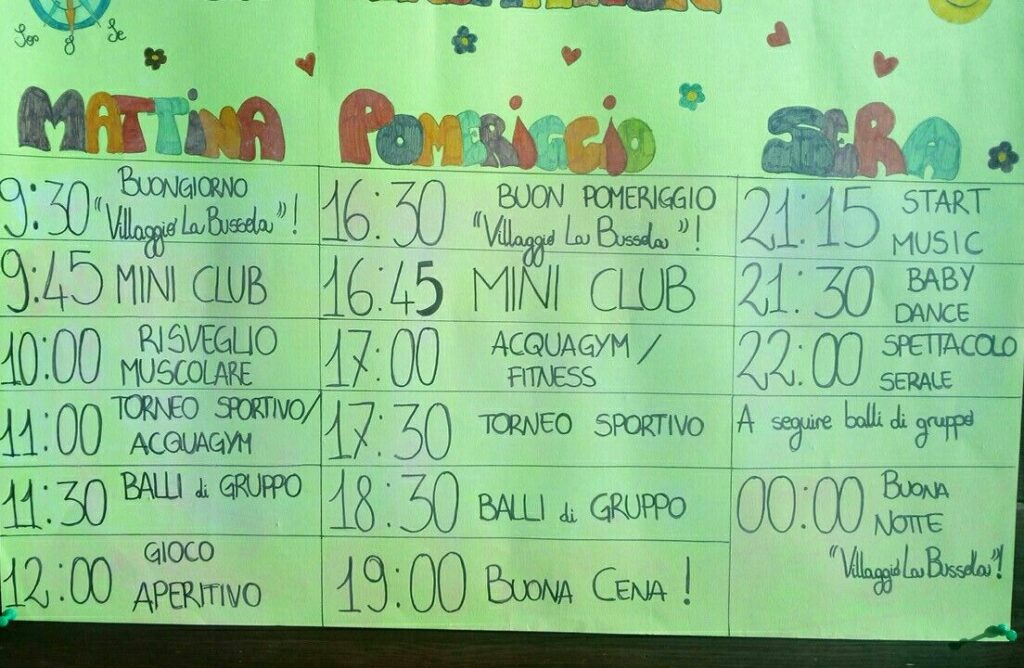 So S Se
MATTINA
9:30 BUONGIORNO
"Villaggio La Bussola"!
9:45 MINI CLUB
10:00 RISVEGLIO
MUSCOLARE
11:00 TORNEO SPORTIVO/
ACQUAGYM
11:30 BALLI di GRUPPO
12:00 GIOCO
APERITIVO
POMERIGGIO
16:30 BUON POMERIGGIO
"Villaggio La Bussola"!
16:45 MINI CLUB
17:00 ACQUAGYM/
FITNESS
17:30 TORNEO SPORTIVO
18:30 BALLI di GRUPPO
19:00 BUONA CENA!
SERA
21:15 START
MUSIC
21:30 BABY
DANCE
22:00 SPETTACOLO
SERALE
A seguire balli di gruppo
00:00 BUONA
NOTTE
"Villaggio La Bussola"!